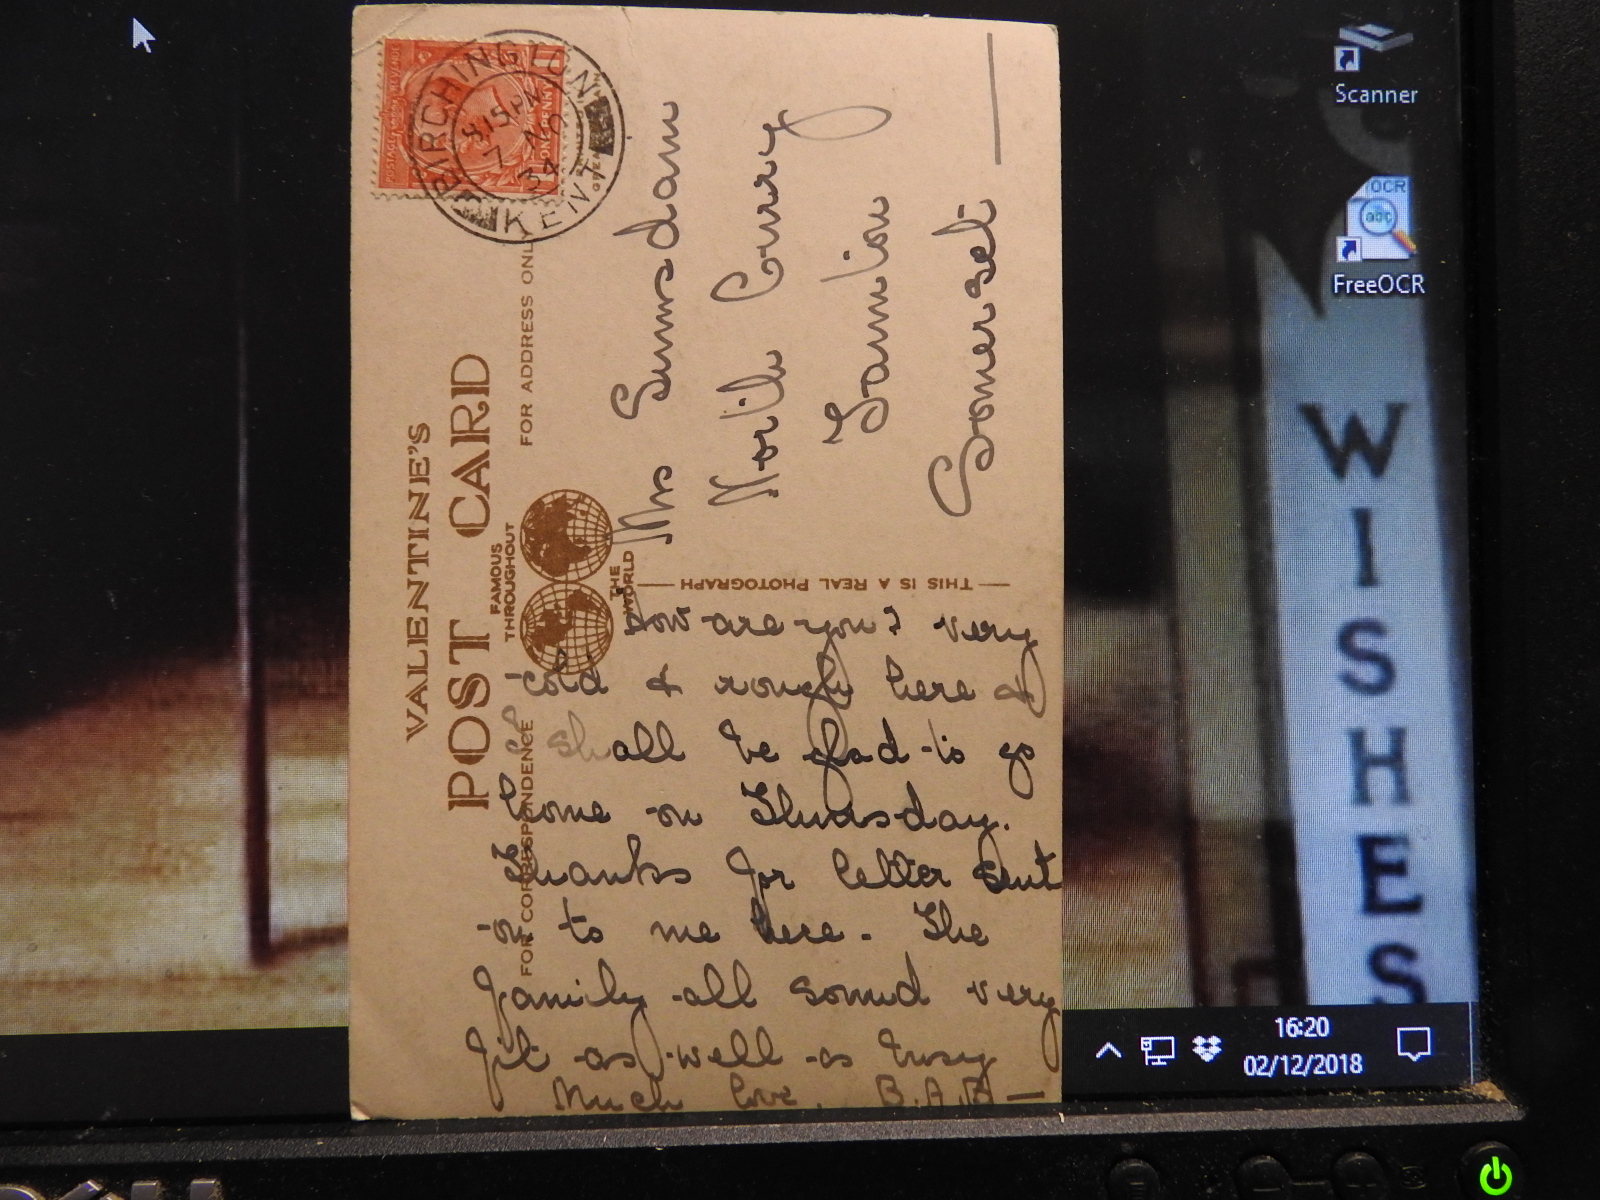 VALENTINE'S
POST CARD
FAMOUS
THROUGHOUT
THE
WORLD
FOR CORRESPONDENCE
FOR ADDRESS ONLY
THIS IS A REAL PHOTOGRAPH
BIRCHINGTON
8.15 PM
7 NO
34
KENT
POSTAGE REVENUE
ONE PENNY
Mrs Sumsdam
North Curry
Taunton
Somerset
How are you? Very
cold & rough here &
I shall be glad to go
home on Thursday.
Thanks for letter sent
on to me here. The
family all sound very
fit as well as busy
Much love. B.A.B
Scanner
OCR
abc
FreeOCR
WISHES
16:20
02/12/2018